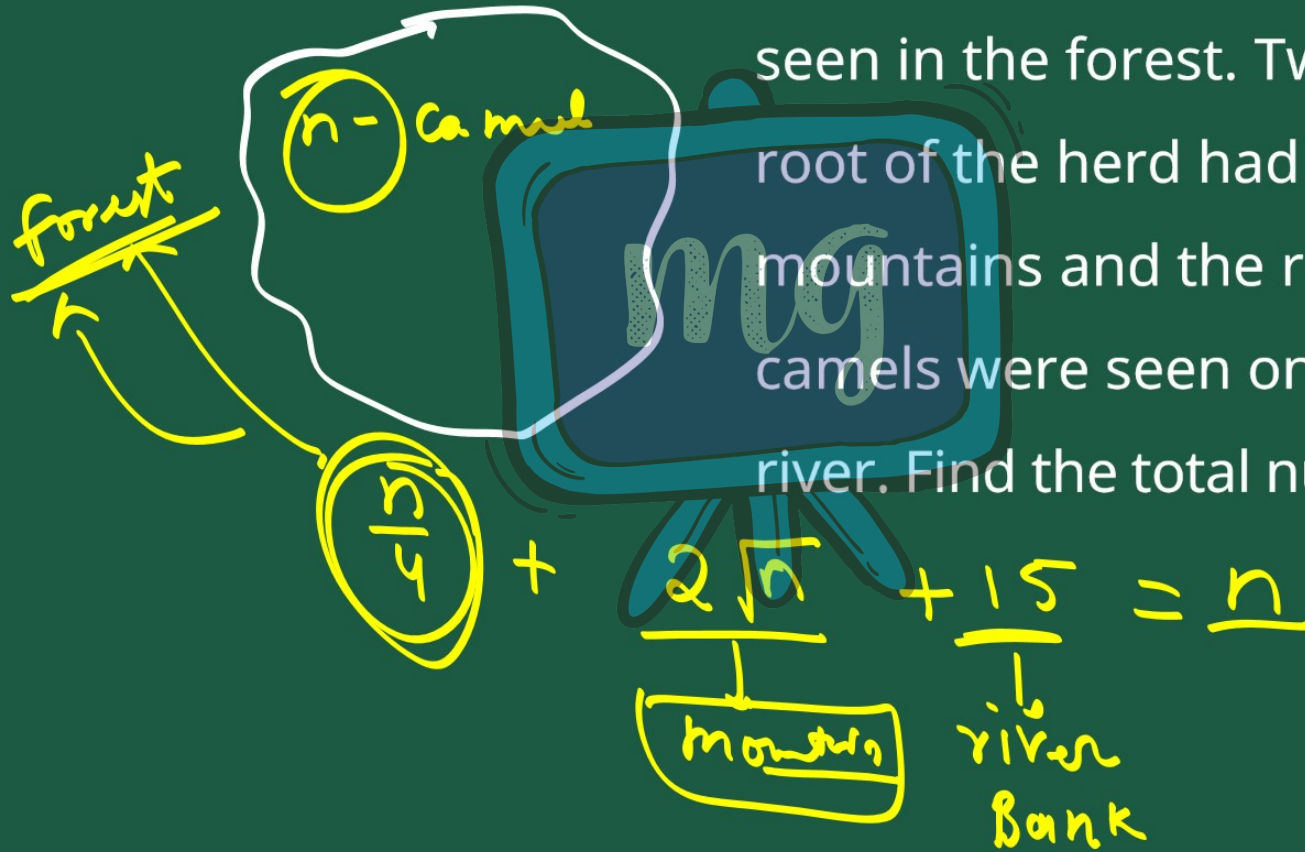 seen in the forest. Tw
root of the herd had
mountains and the r
camels were seen on
river. Find the total nu
n - Camul
forest
mg
n/4 + 2√n + 15 = n
mountain
river
Bank